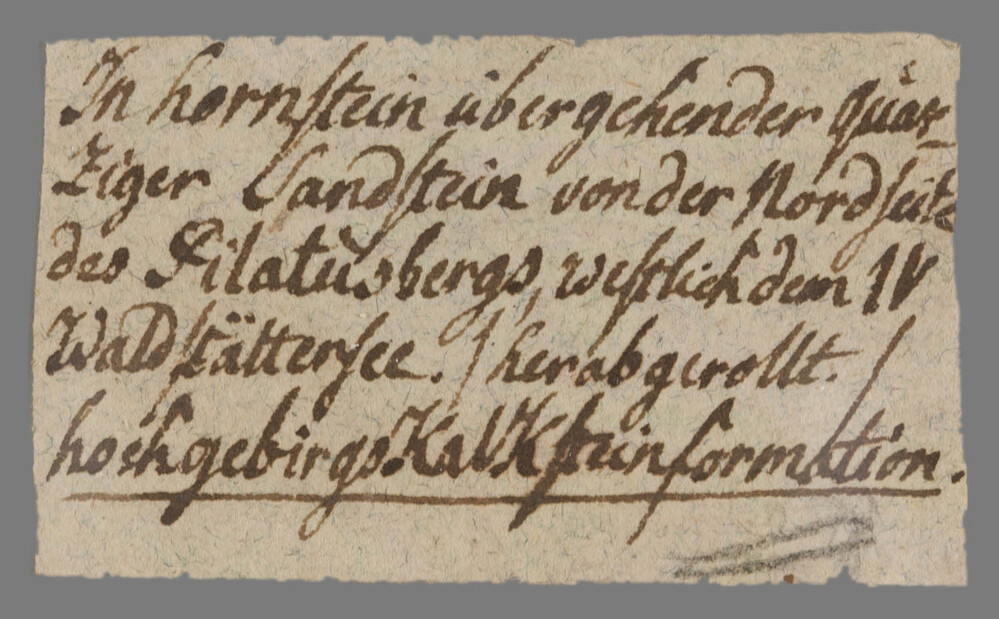 In hornstein übergehender quar-
ziger Sandstein von der Nordseite
des Pilatusbergs, westlich dem IV
Waldstättersee. / herabgerollt. /
hochgebirgsKalKsteinformation.